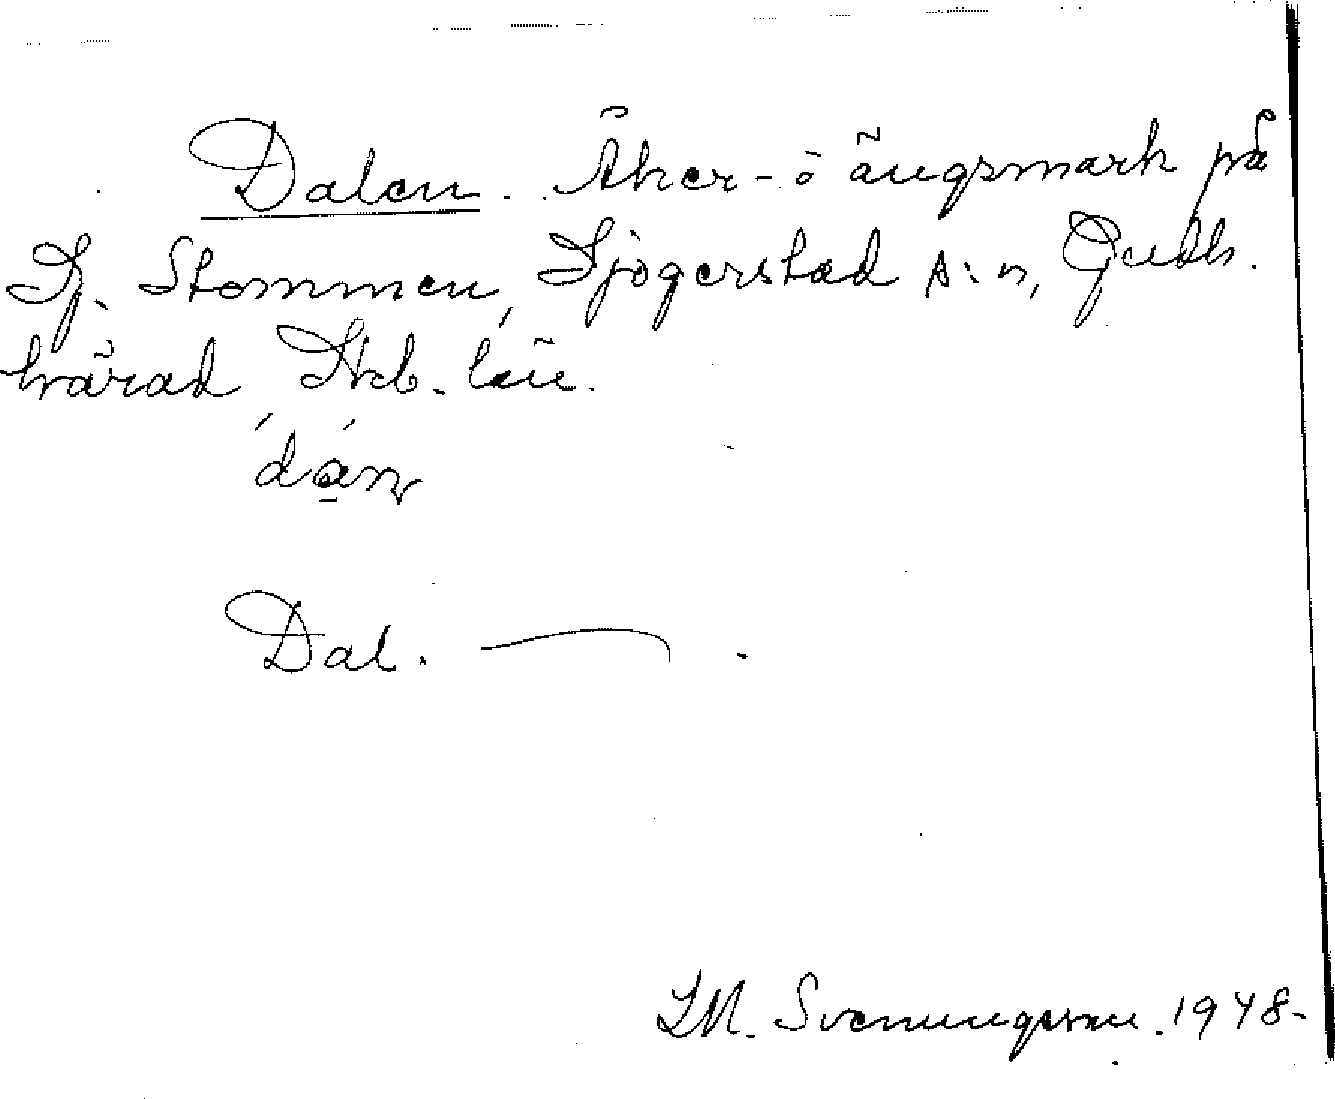 Dalen. Åker- o ängsmark på
Sj. Stommen, Sjogerstad s:n, Gudh.
härad Skb. län.
Dal.
S.M. Svenungsson. 1948-